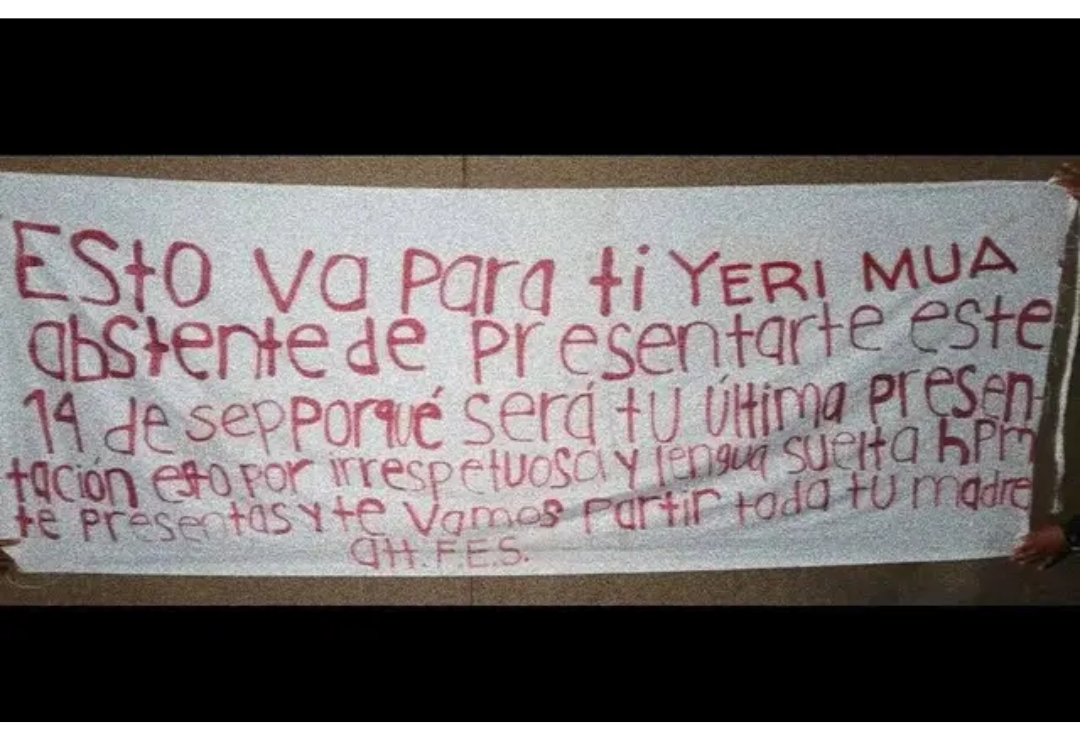 ESto va para ti YERI MUA
abstente de presentarte este
14 de sep porqué será tu última presen-
tación esto por irrespetuosa y lengua suelta hpm
te presentas y te vamos partir toda tu madre
att. F.E.S.